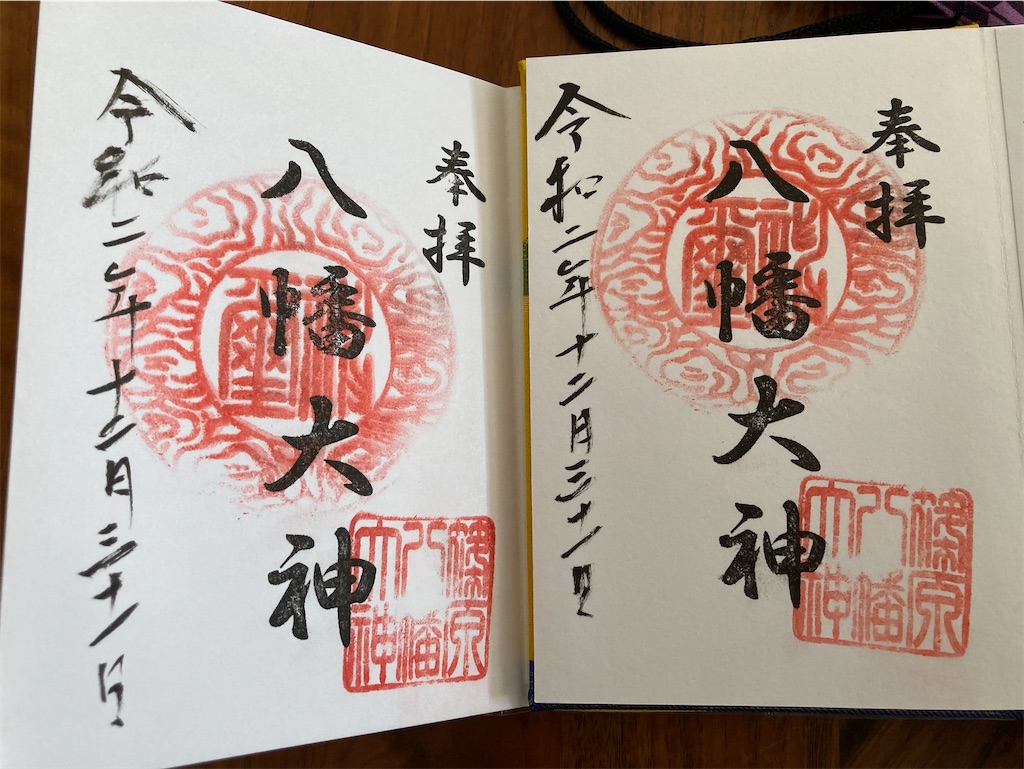 奉拝
八幡大神
篠原
八幡
大神
令和二年十二月三十一日
奉拝
八幡大神
篠原
八幡
大神
令和二年十二月三十一日